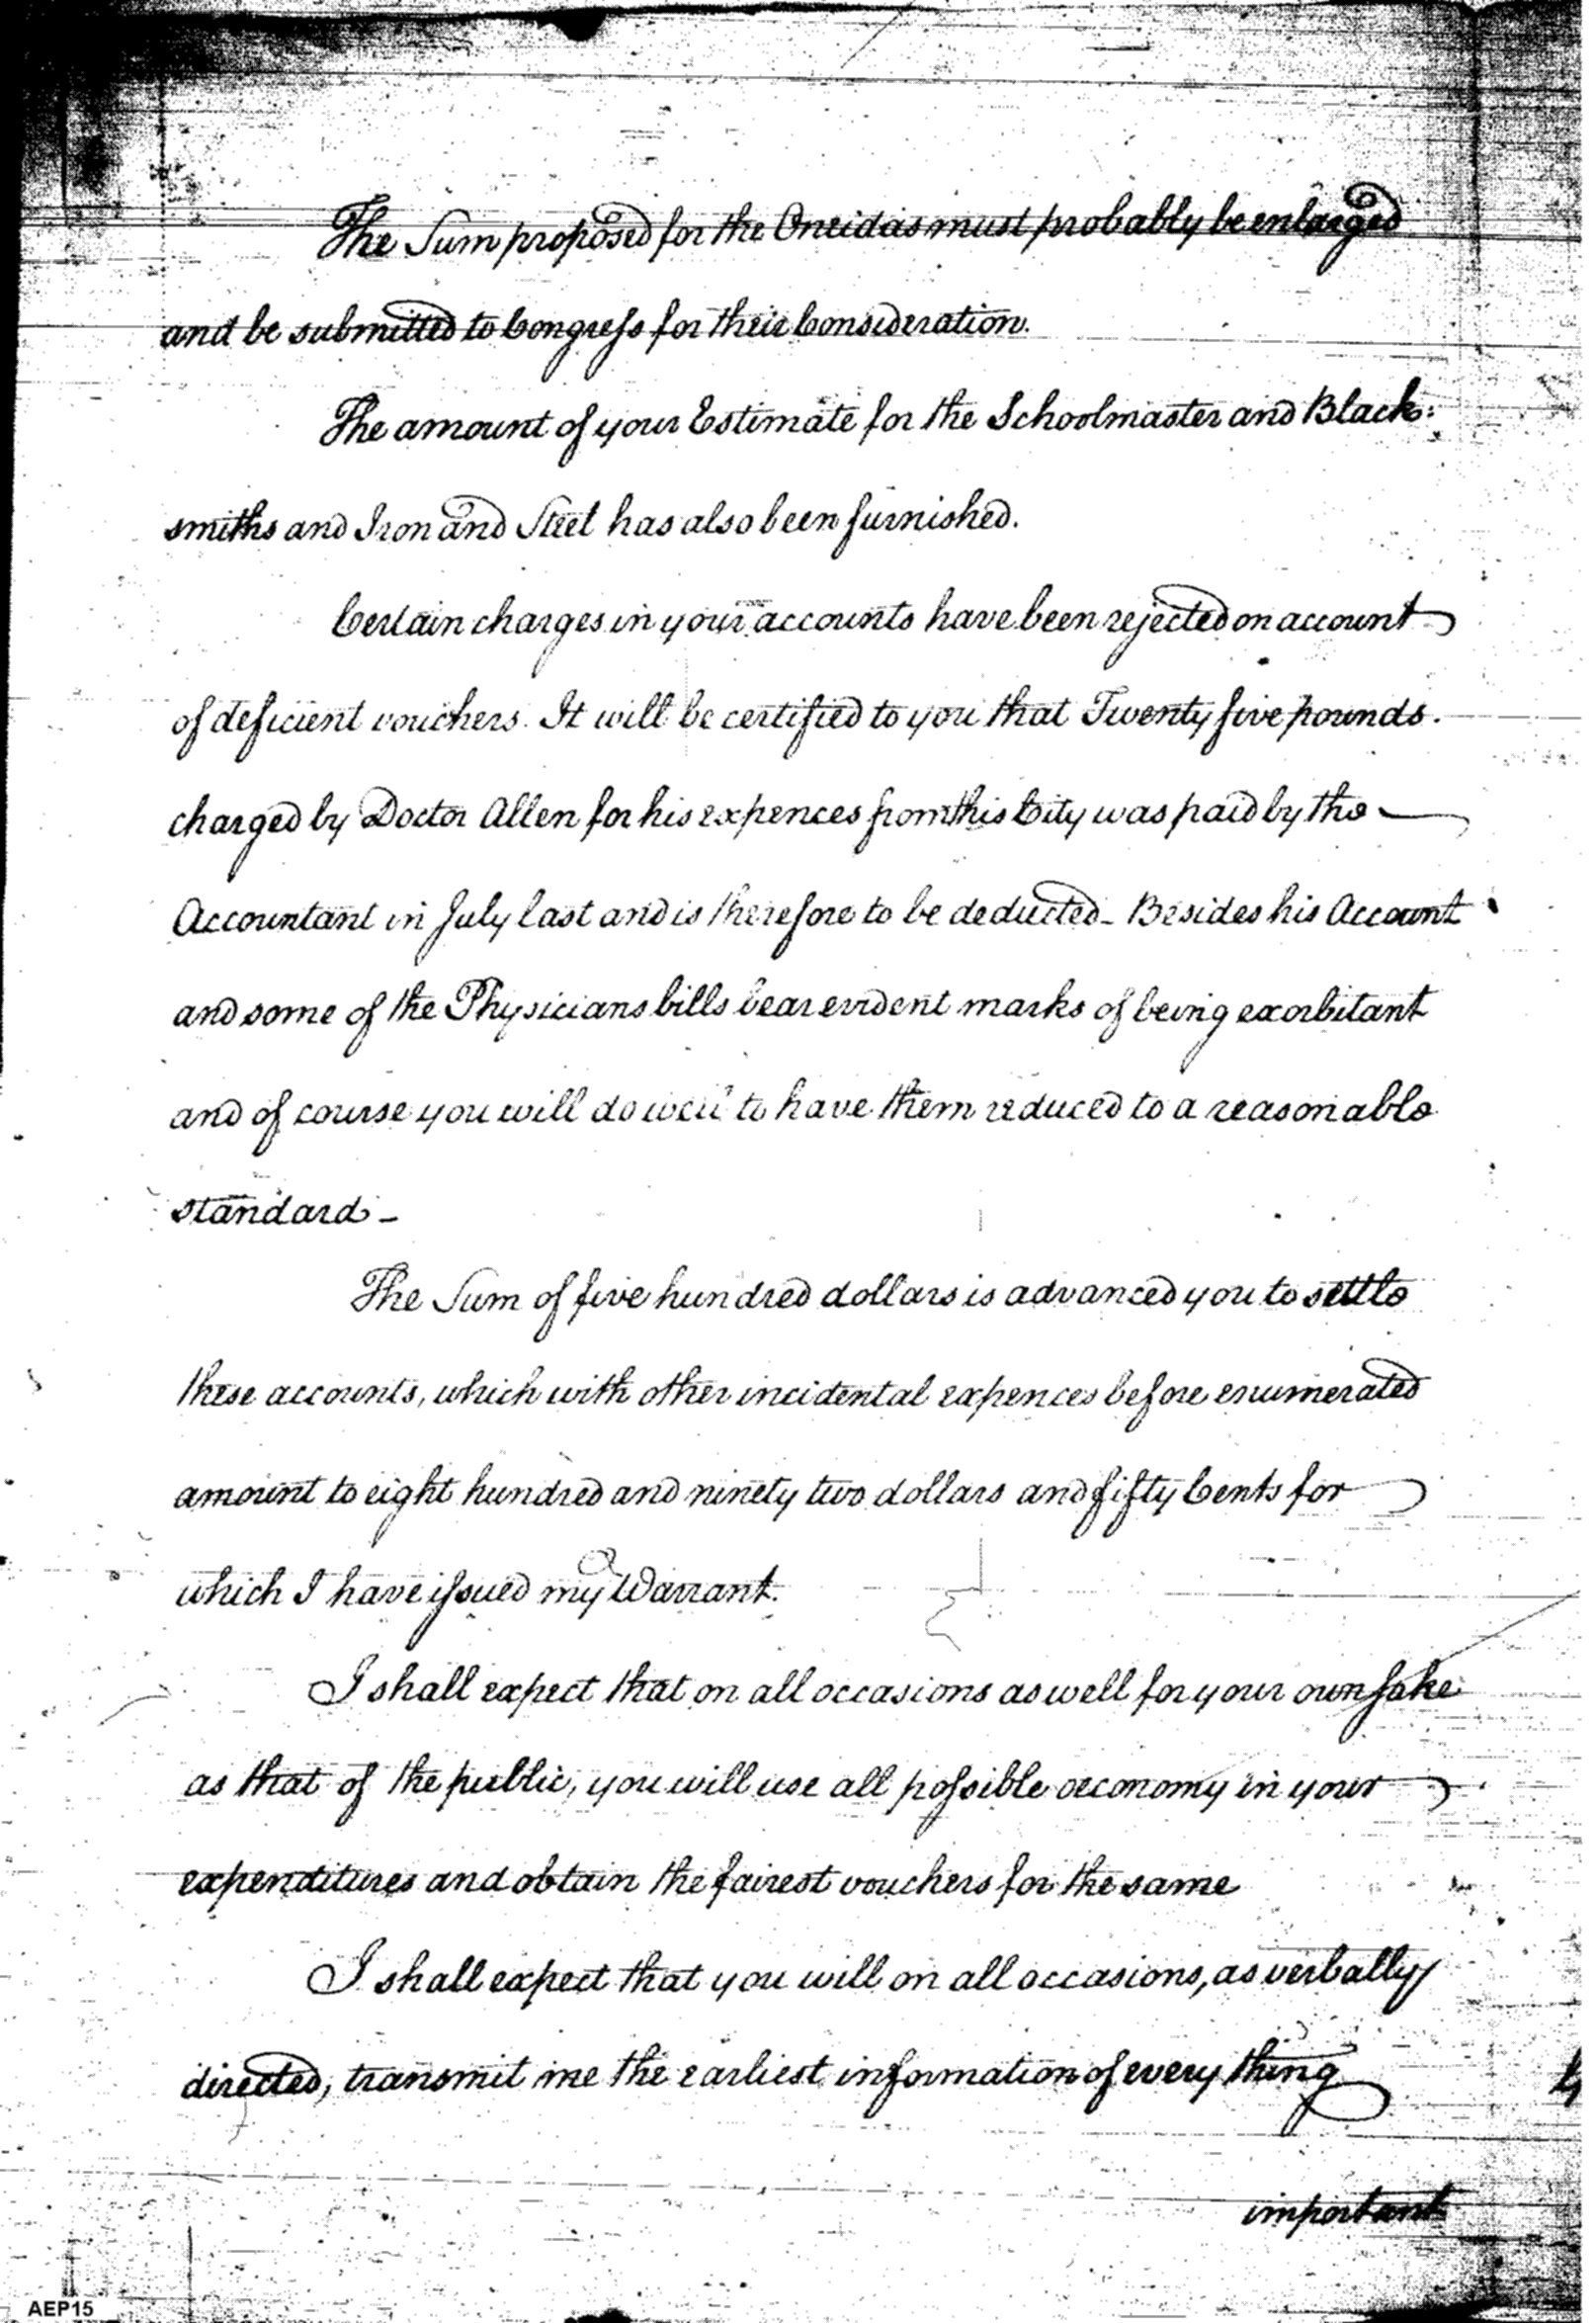 The Sum proposed for the Oneidas must probably be enlarged
and be submitted to Congress for their Consideration.
The amount of your Estimate for the Schoolmaster and Black:
smiths and Iron and Steel has also been furnished.
Certain charges in your accounts have been rejected on account
of deficient vouchers. It will be certified to you that Twenty five pounds.
charged by Doctor Allen for his expences from this City was paid by the
Accountant in July last and is therefore to be deducted - Besides his Account
and some of the Physicians bills bear evident marks of being exorbitant
and of course you will do well to have them reduced to a reasonable
standard -
The Sum of five hundred dollars is advanced you to settle
these accounts, which with other incidental expences before enumerated
amount to eight hundred and ninety two dollars and fifty Cents for
which I have issued my Warrant.
I shall expect that on all occasions as well for your own sake
as that of the public, you will use all possible oeconomy in your
expenditures and obtain the fairest vouchers for the same
I shall expect that you will on all occasions, as verbally
directed, transmit me the earliest information of every thing
important
AEP15